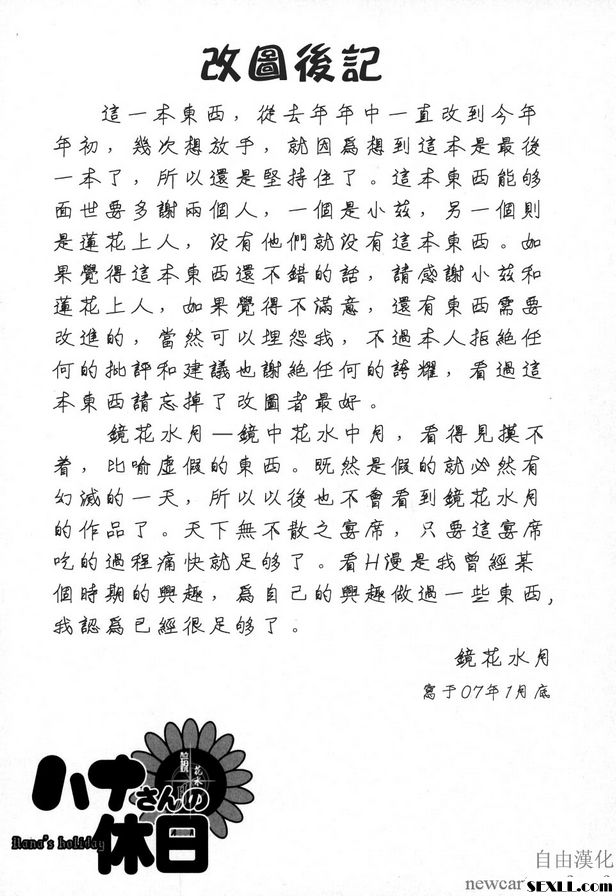 改圖後記
這一本東西，從去年年中一直改到今年
年初，幾次想放手，就因爲想到這本是最後
一本了，所以還是堅持住了。這本東西能够
面世要多謝兩個人，一個是小兹，另一個則
是蓮花上人，没有他們就没有這本東西。如
果覺得這本東西還不錯的話，請感謝小兹和
蓮花上人，如果覺得不滿意，還有東西需要
改進的，當然可以埋怨我，不過本人拒絶任
何的批評和建議也謝絶任何的誇耀，看過這
本東西請忘掉了改圖者最好。
鏡花水月—鏡中花水中月，看得見摸不
着，比喻虚假的東西。既然是假的就必然有
幻滅的一天，所以以後也不會看到鏡花水月
的作品了。天下無不散之宴席，只要這宴席
吃的過程痛快就足够了。看H漫是我曾經某
個時期的興趣，爲自己的興趣做過一些東西，
我認爲已經很足够了。
鏡花水月
寫于07年1月底
ハナさんの
休日
Hana's holiday
自由漢化
SEXLL.COM